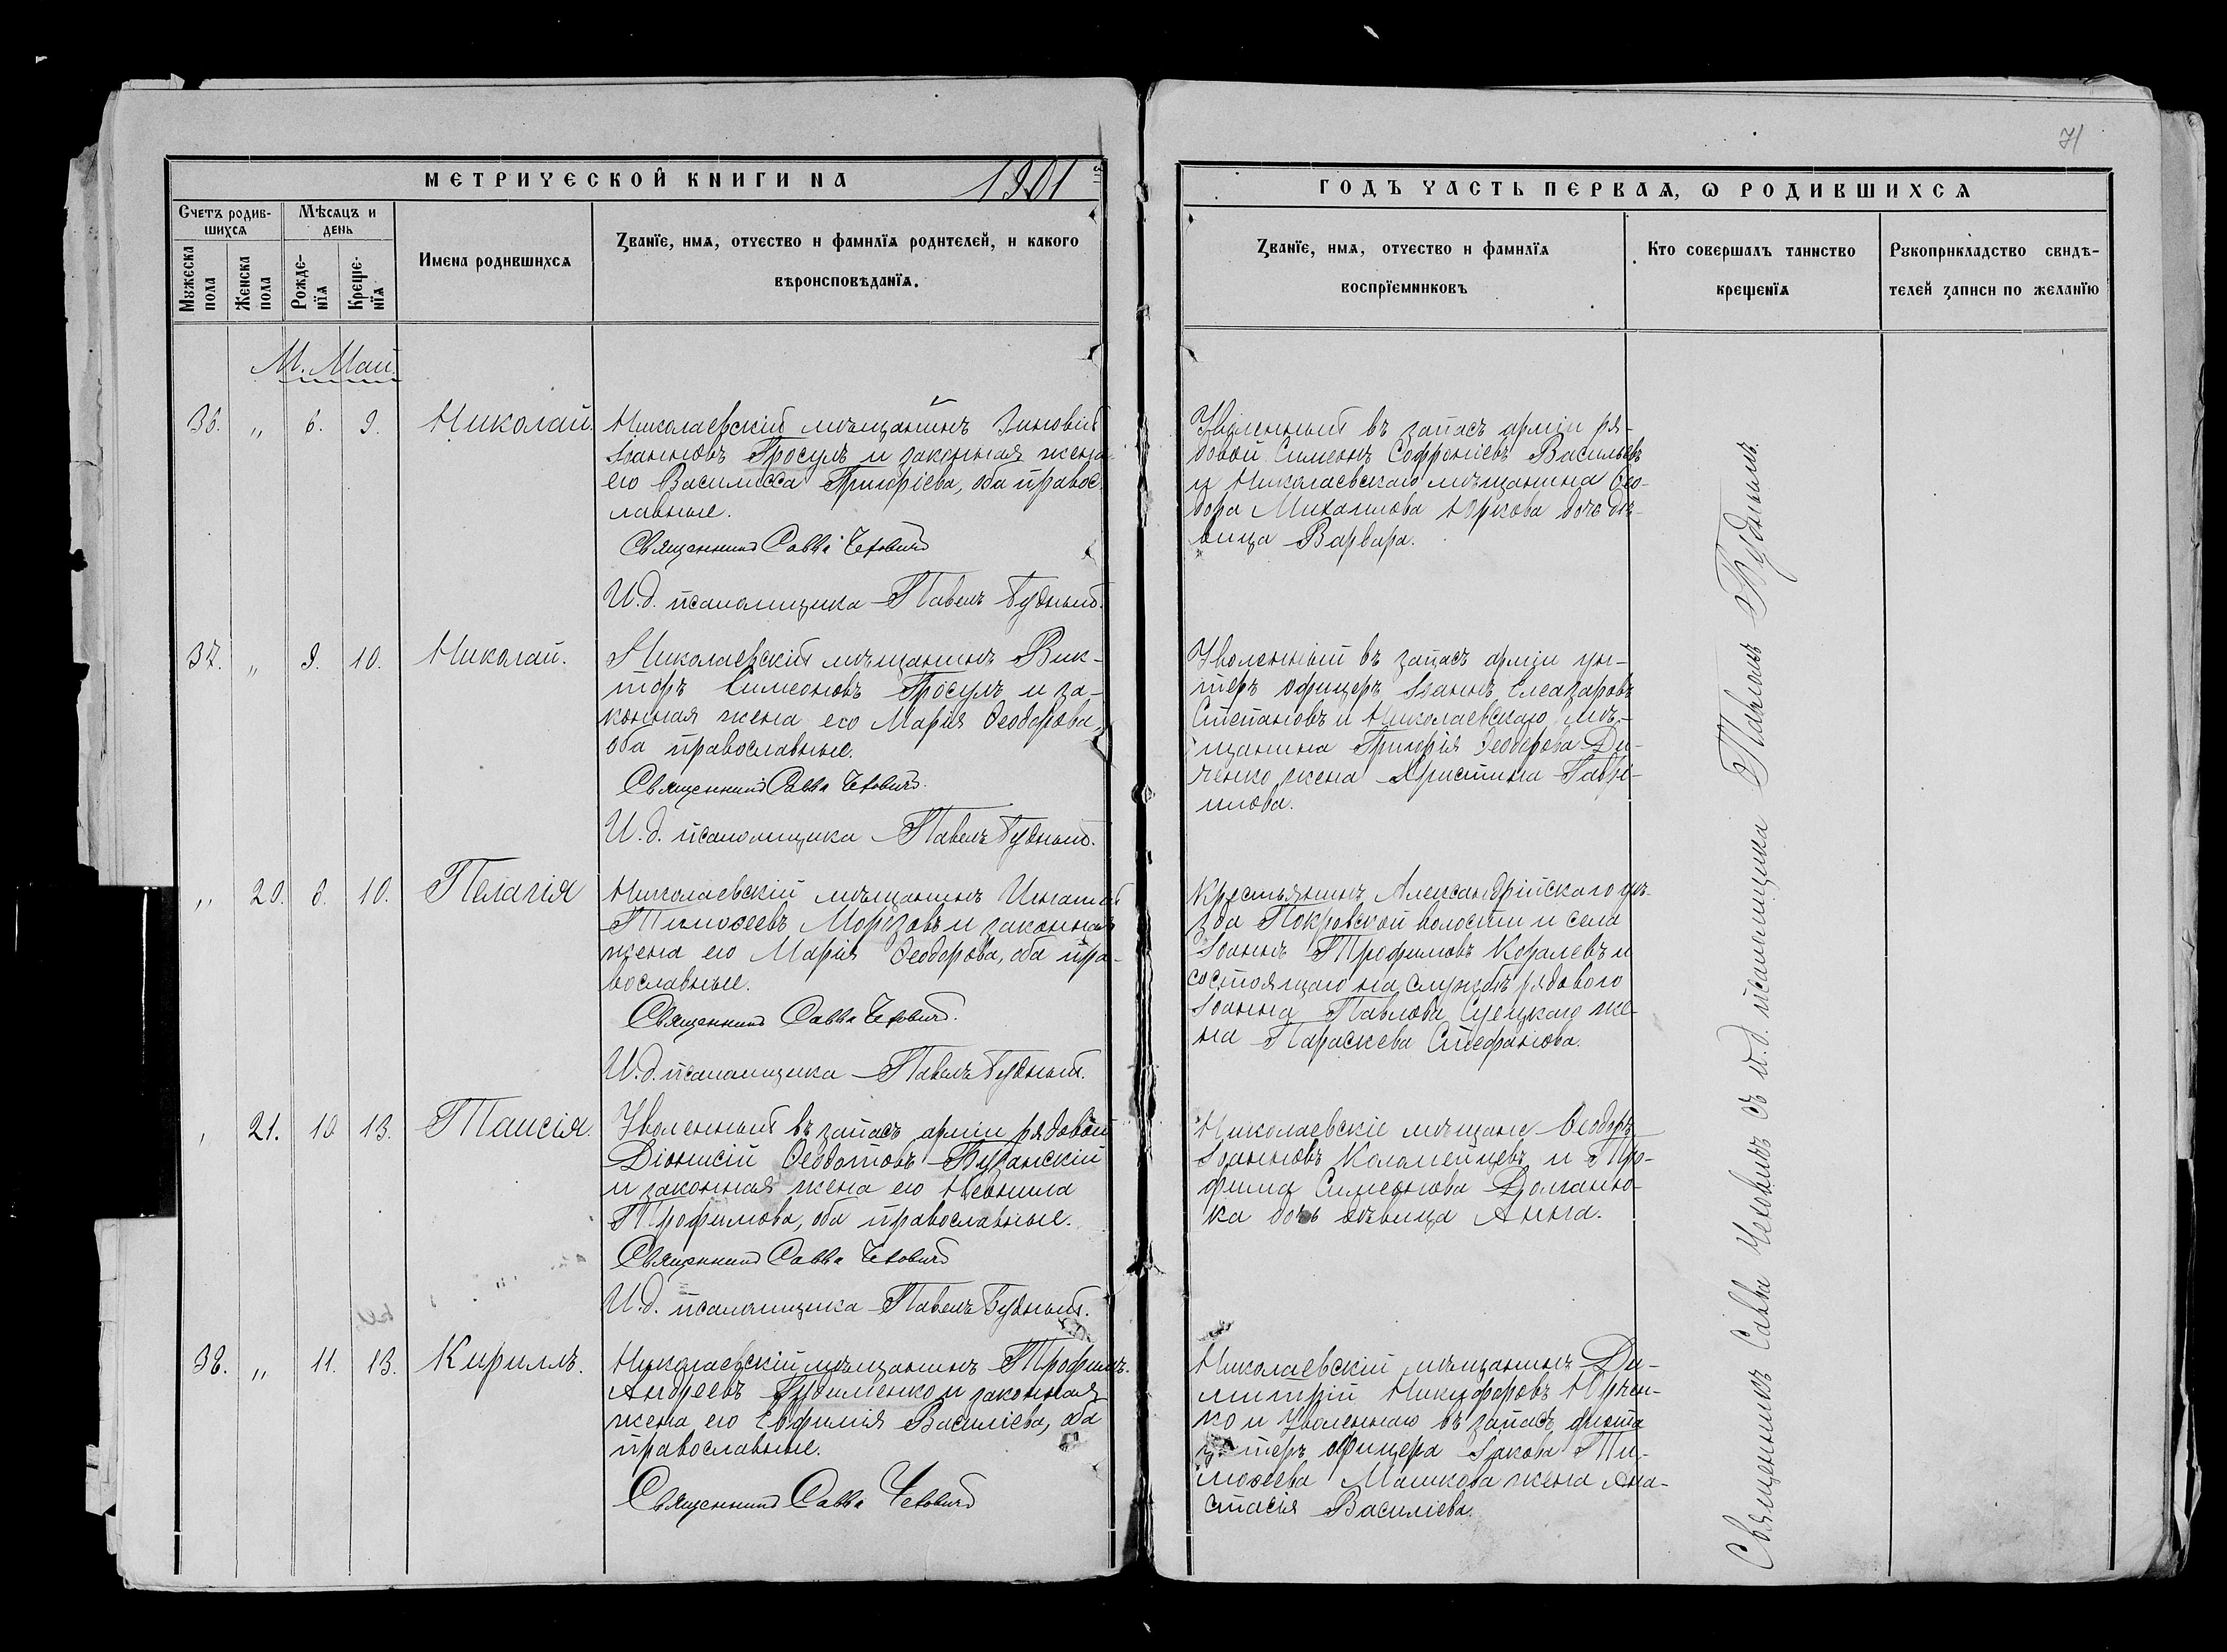 71
МЕТРИЧЕСКОЙ КНИГИ НА 1901
ГОДЪ ЧАСТЬ ПЕРВАЯ, Ѡ РОДИВШИХСЯ
Счетъ родив-
шихся
Мѣсяцъ и
день
Мужеска
пола
Женска
пола
Рожде-
нїя
Креще-
нїя
Имена родившихся
Званїе, имя, отчество и фамилїя родителей, и какого
вѣроисповѣданїя.
Званїе, имя, отчество и фамилїя
воспрїемниковъ
Кто совершалъ таинство
крещенїя
Рукоприкладство свидѣ-
телей записи по желанїю
М. Май.
36. „ 6. 9. Николай.
Николаевскій мѣщанинъ Зиновій
Іоанновъ Гросулъ и законная жена
его Василисса Григоріева, оба правос-
лавные.
Священникъ Савва Чеховичъ
И. д. псаломщика Павелъ Будный.
Уволенный въ запасъ арміи ря-
довой Симеонъ Софроніевъ Васильевъ
и Николаевскаго мѣщанина Ѳео-
дора Михаилова Юркова дочь дѣ-
вица Варвара.
37. „ 9. 10. Николай.
Николаевскій мѣщанинъ Вик-
торъ Симеоновъ Гросулъ и за-
конная жена его Марія Ѳеодорова,
оба православные.
Священникъ Савва Чеховичъ.
И. д. псаломщика Павелъ Будный.
Уволенный въ запасъ арміи ун-
теръ офицеръ Іоаннъ Елеазаровъ
Степановъ и Николаевскаго мѣ-
щанина Григорія Ѳеодорова Ди-
ченко жена Христина Гаврі-
илова.
„ 20. 8. 10. Пелагія
Николаевскій мѣщанинъ Игнатій
Тимоѳеевъ Морозовъ и законная
жена его Марія Ѳеодорова, оба пра-
вославные.
Священникъ Савва Чеховичъ.
И. д. псаломщика Павелъ Будный.
Крестьянинъ Александрійскаго уѣ-
зда Покровской волости и села
Іоаннъ Трофимовъ Ковалевъ и
состоящаго на службѣ рядового
Іоанна Павлова же-
на Параскева Стефанова.
„ 21. 10 13. Таисія.
Уволенный въ запасъ арміи рядовой
Діонисій Ѳеодотовъ Бузанскій
и законная жена его Неонила
Трофимова, оба православные.
Священникъ Савва Чеховичъ
И. д. псаломщика Павелъ Будный.
Николаевскіе мѣщане Ѳеодоръ
Іоанновъ Коломейцевъ и Тро-
фима Симеонова Доманю-
ка дочь дѣвица Анна.
38. „ 11. 13. Кириллъ.
Николаевскій мѣщанинъ Трофимъ
Андреевъ Гудименко и законная
жена его Евфимія Василіева, оба
православные.
Священникъ Савва Чеховичъ
Николаевскій мѣщанинъ Ди-
митрій Никифоровъ Юрчен-
ко и уволеннаго въ запасъ флота
унтеръ офицера Іакова Ти-
моѳеева Машкова жена Ана-
стасія Василіева.
Священникъ Савва Чеховичъ съ и.д. псаломщика Павломъ Буднымъ.